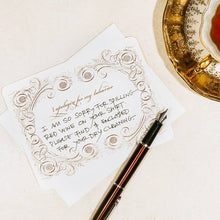 I apologize for my behavior
I AM SO SORRY FOR SPILLING
RED WINE ON YOUR SHIRT.
PLEASE FIND $ ENCLOSED
FOR YOUR DRY CLEANING.